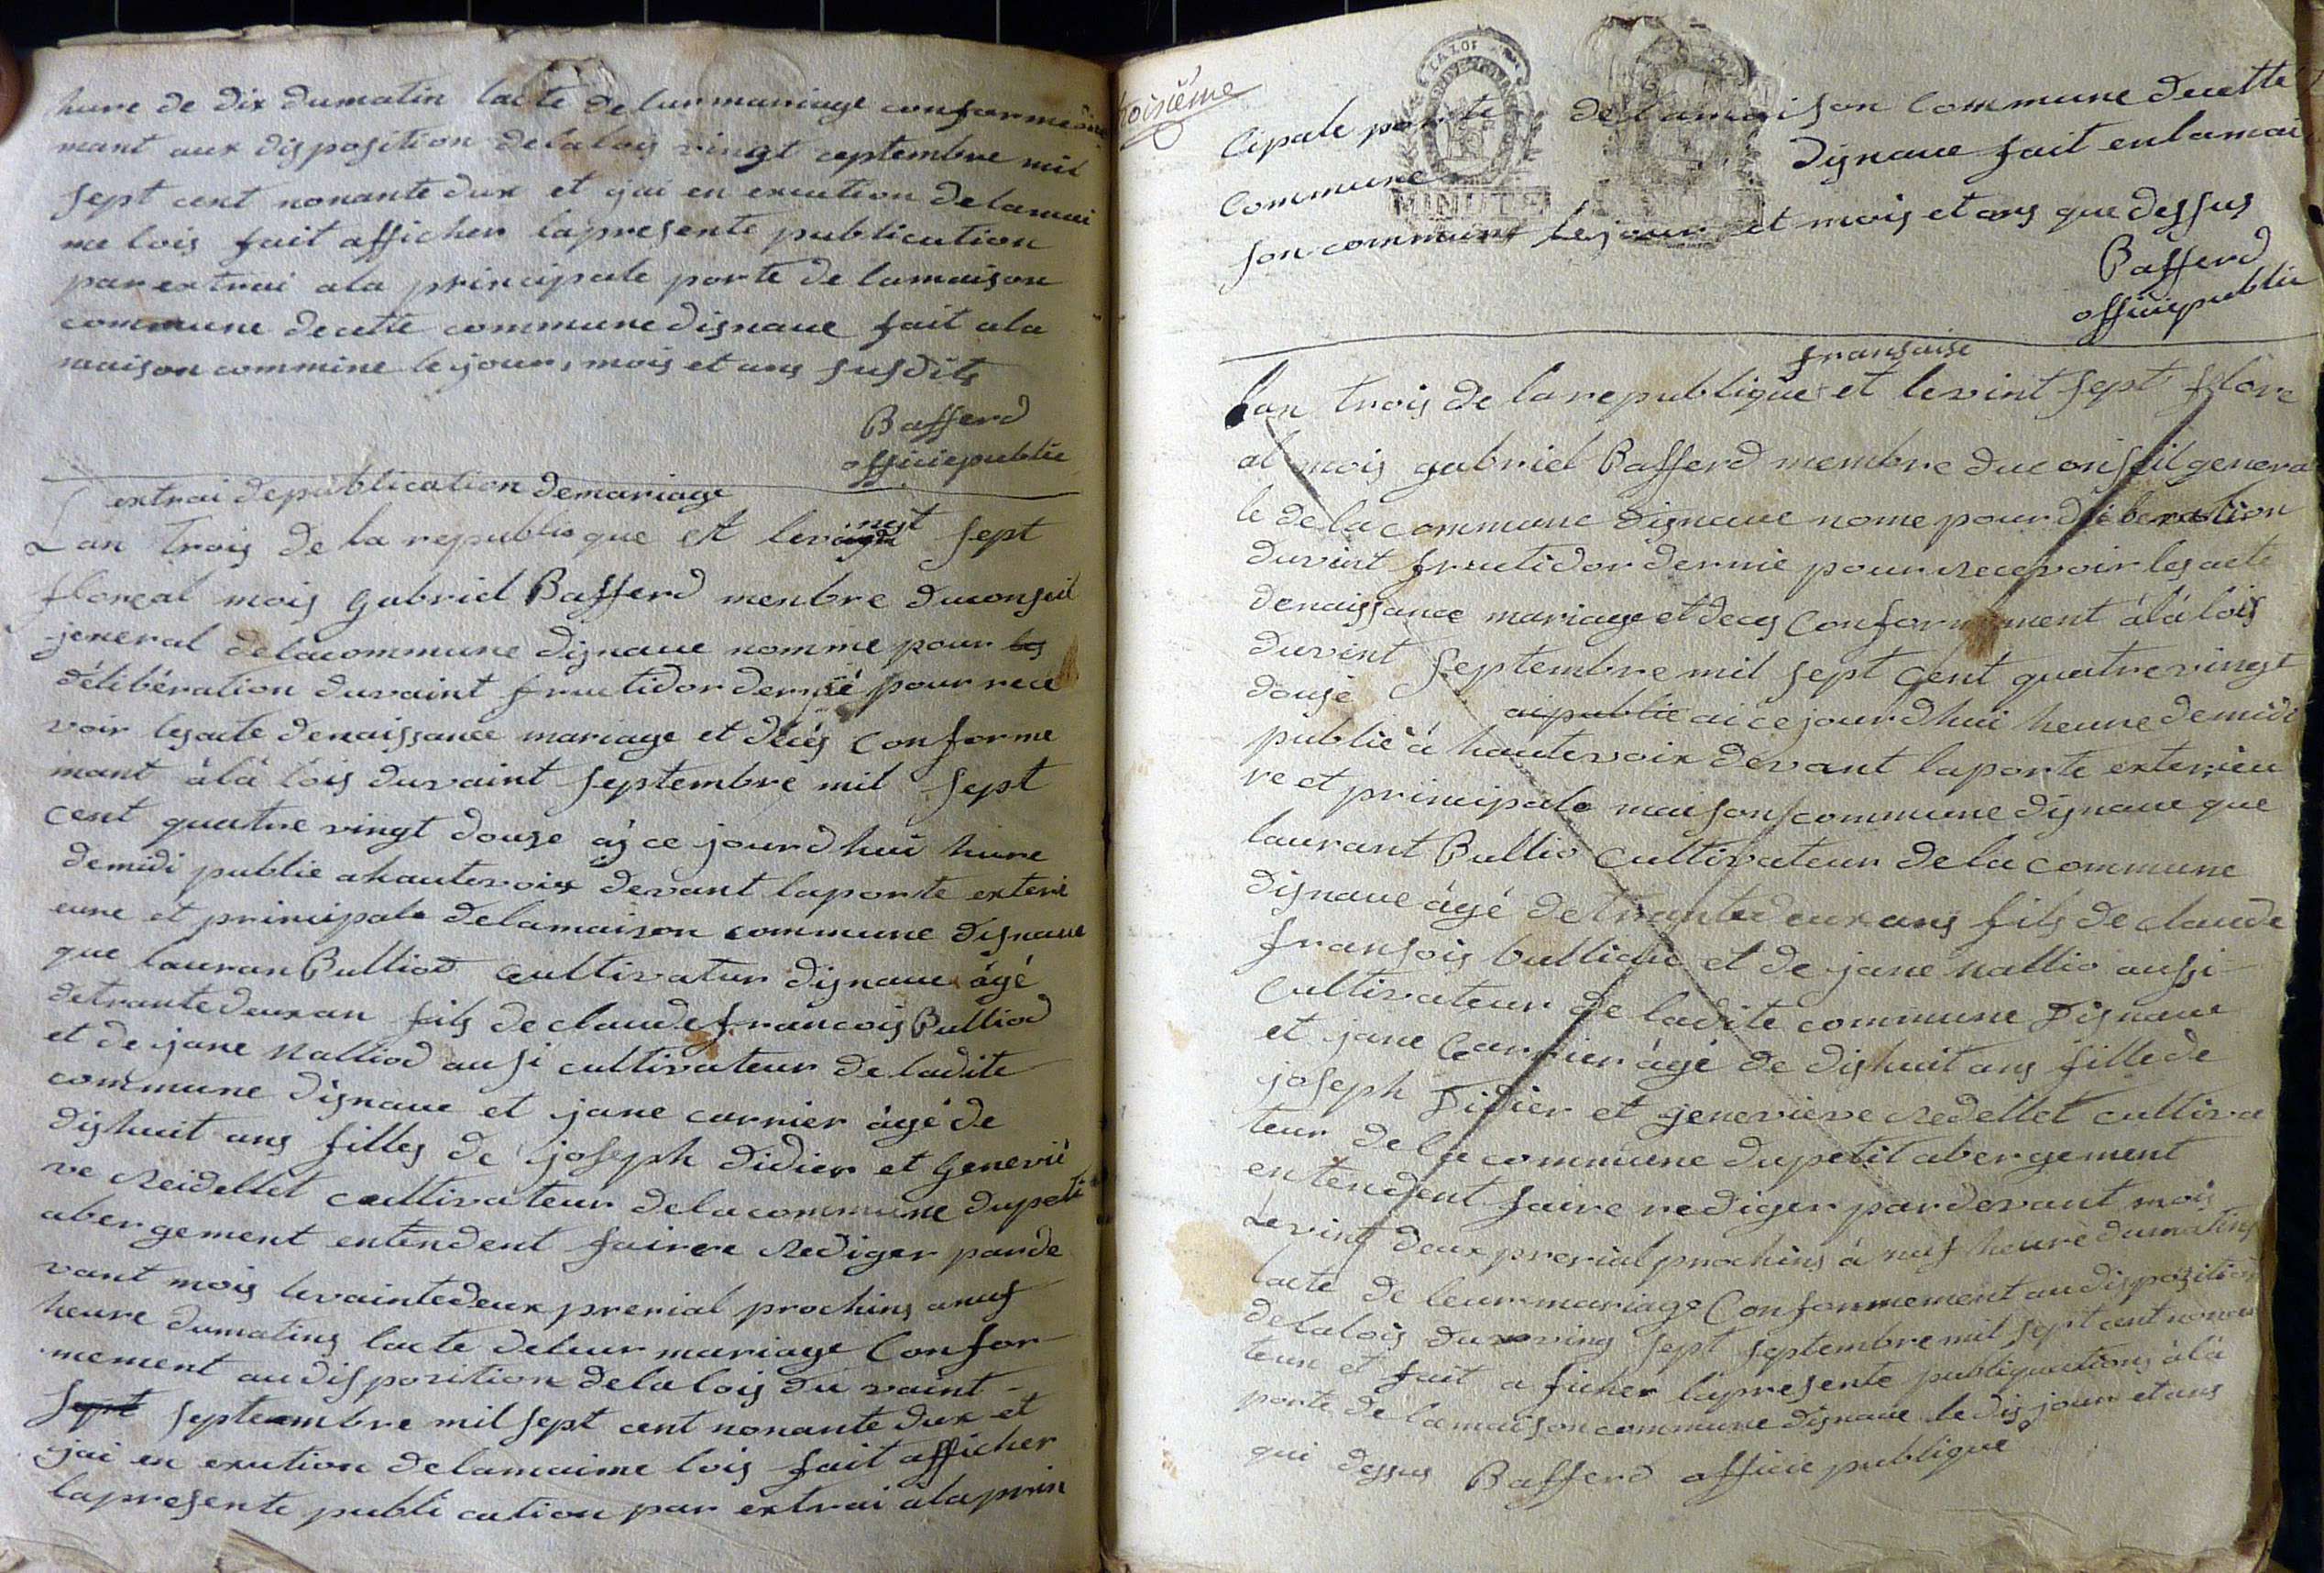 hure de dix dumatin lacte de lur manriage conformeme
mant aux disposition delalois vingt ceptembre mil
sept cent nonante dux et jai en excution delamai
me lois fait afficher lapresente publication
par extrai ala principale porte de lamaison
commune decette commune dignaue fait ala
maison commine le jour, mois et ans susdits
Bafferd
officiepublic
extrai depublication demariage
Lan trois de la republique et levaingt sept
floreal mois gabriel Bafferd menbre duconseil
jeneral delacommune dignaue nomme pour les
délibération duvaint fructidor dernié pour rece
voir lesacte denaissance mariage et décés conforme
mant àlà lois duvaint septembre mil sept
cent quatre vingt douze aj ce jourdhui hure
demidi publie ahautevoix devant laporte exteri
eure et principale delamaison commune dignaue
que lauran Bulliod cultivatur dignaue âgé
detrantedeux an fils de claude francois Bulliod
et de jane nalliod ausi cultivateur de ladite
commune dignaue et jane carrier âgé de
dishuit ans filles de joseph didier et Generviè
ve Reidellet cultivateur delacommune dupeti
abergement entendent fairere Rediger parde
vant mois levaintedeux prerial prochins aneuf
heure dumatins lacte deleur mariage Confor-
mement audisposition delalois du vaint-
sept septeambre mil sept cent nonante dux et
jai en exution delamaime lois fait afficher
lapresente publication par extrai alaprin
troisième
LA LOI
MINUTE
cipale porte delamaison commune decette
commune dignaue fait enlamai
son commune lejour et mois et ans que dessus
Bafferd
officiepublic
fransaise
Lan trois de larepublique et levint sept flore
al mois gabriel Bafferd membre duconseil genera
le dela commune dignaue nome pour deliberation
duvint fructidor dernie pour recevoir lesacte
denaissance mariage et deces Conformement àlà lois
duvint septembre mil sept cent quatre vingt
douse aipublie ai cejourdhui heure demidi
publié à hautevoix devant laporte exterieu
re et principale maison commune dignaue que
laurant Bullio cultivateur de la commune
dignaue âgé detrantedeux ans fils de claude
fransois bulliod et de jane nallio aussi
cultivateur de ladite commune dignaue
et jane Carrier âgé de dishuit ans fille de
joseph Didier et jenevieve Redellet cultiva
teur dela commune dupetit abergement
entendent faire rediger pardevant mois
Levint deux prerial prochins à neuf heure dumatins
lacte de leur mariage Conformement audisposition
delalois du ving sept septembre mil sept cent
et fait a ficher lapresente publiquations àlà
porte de lamaison commune dignaue le dis jour et ans
qui dessus Bafferd officie publique